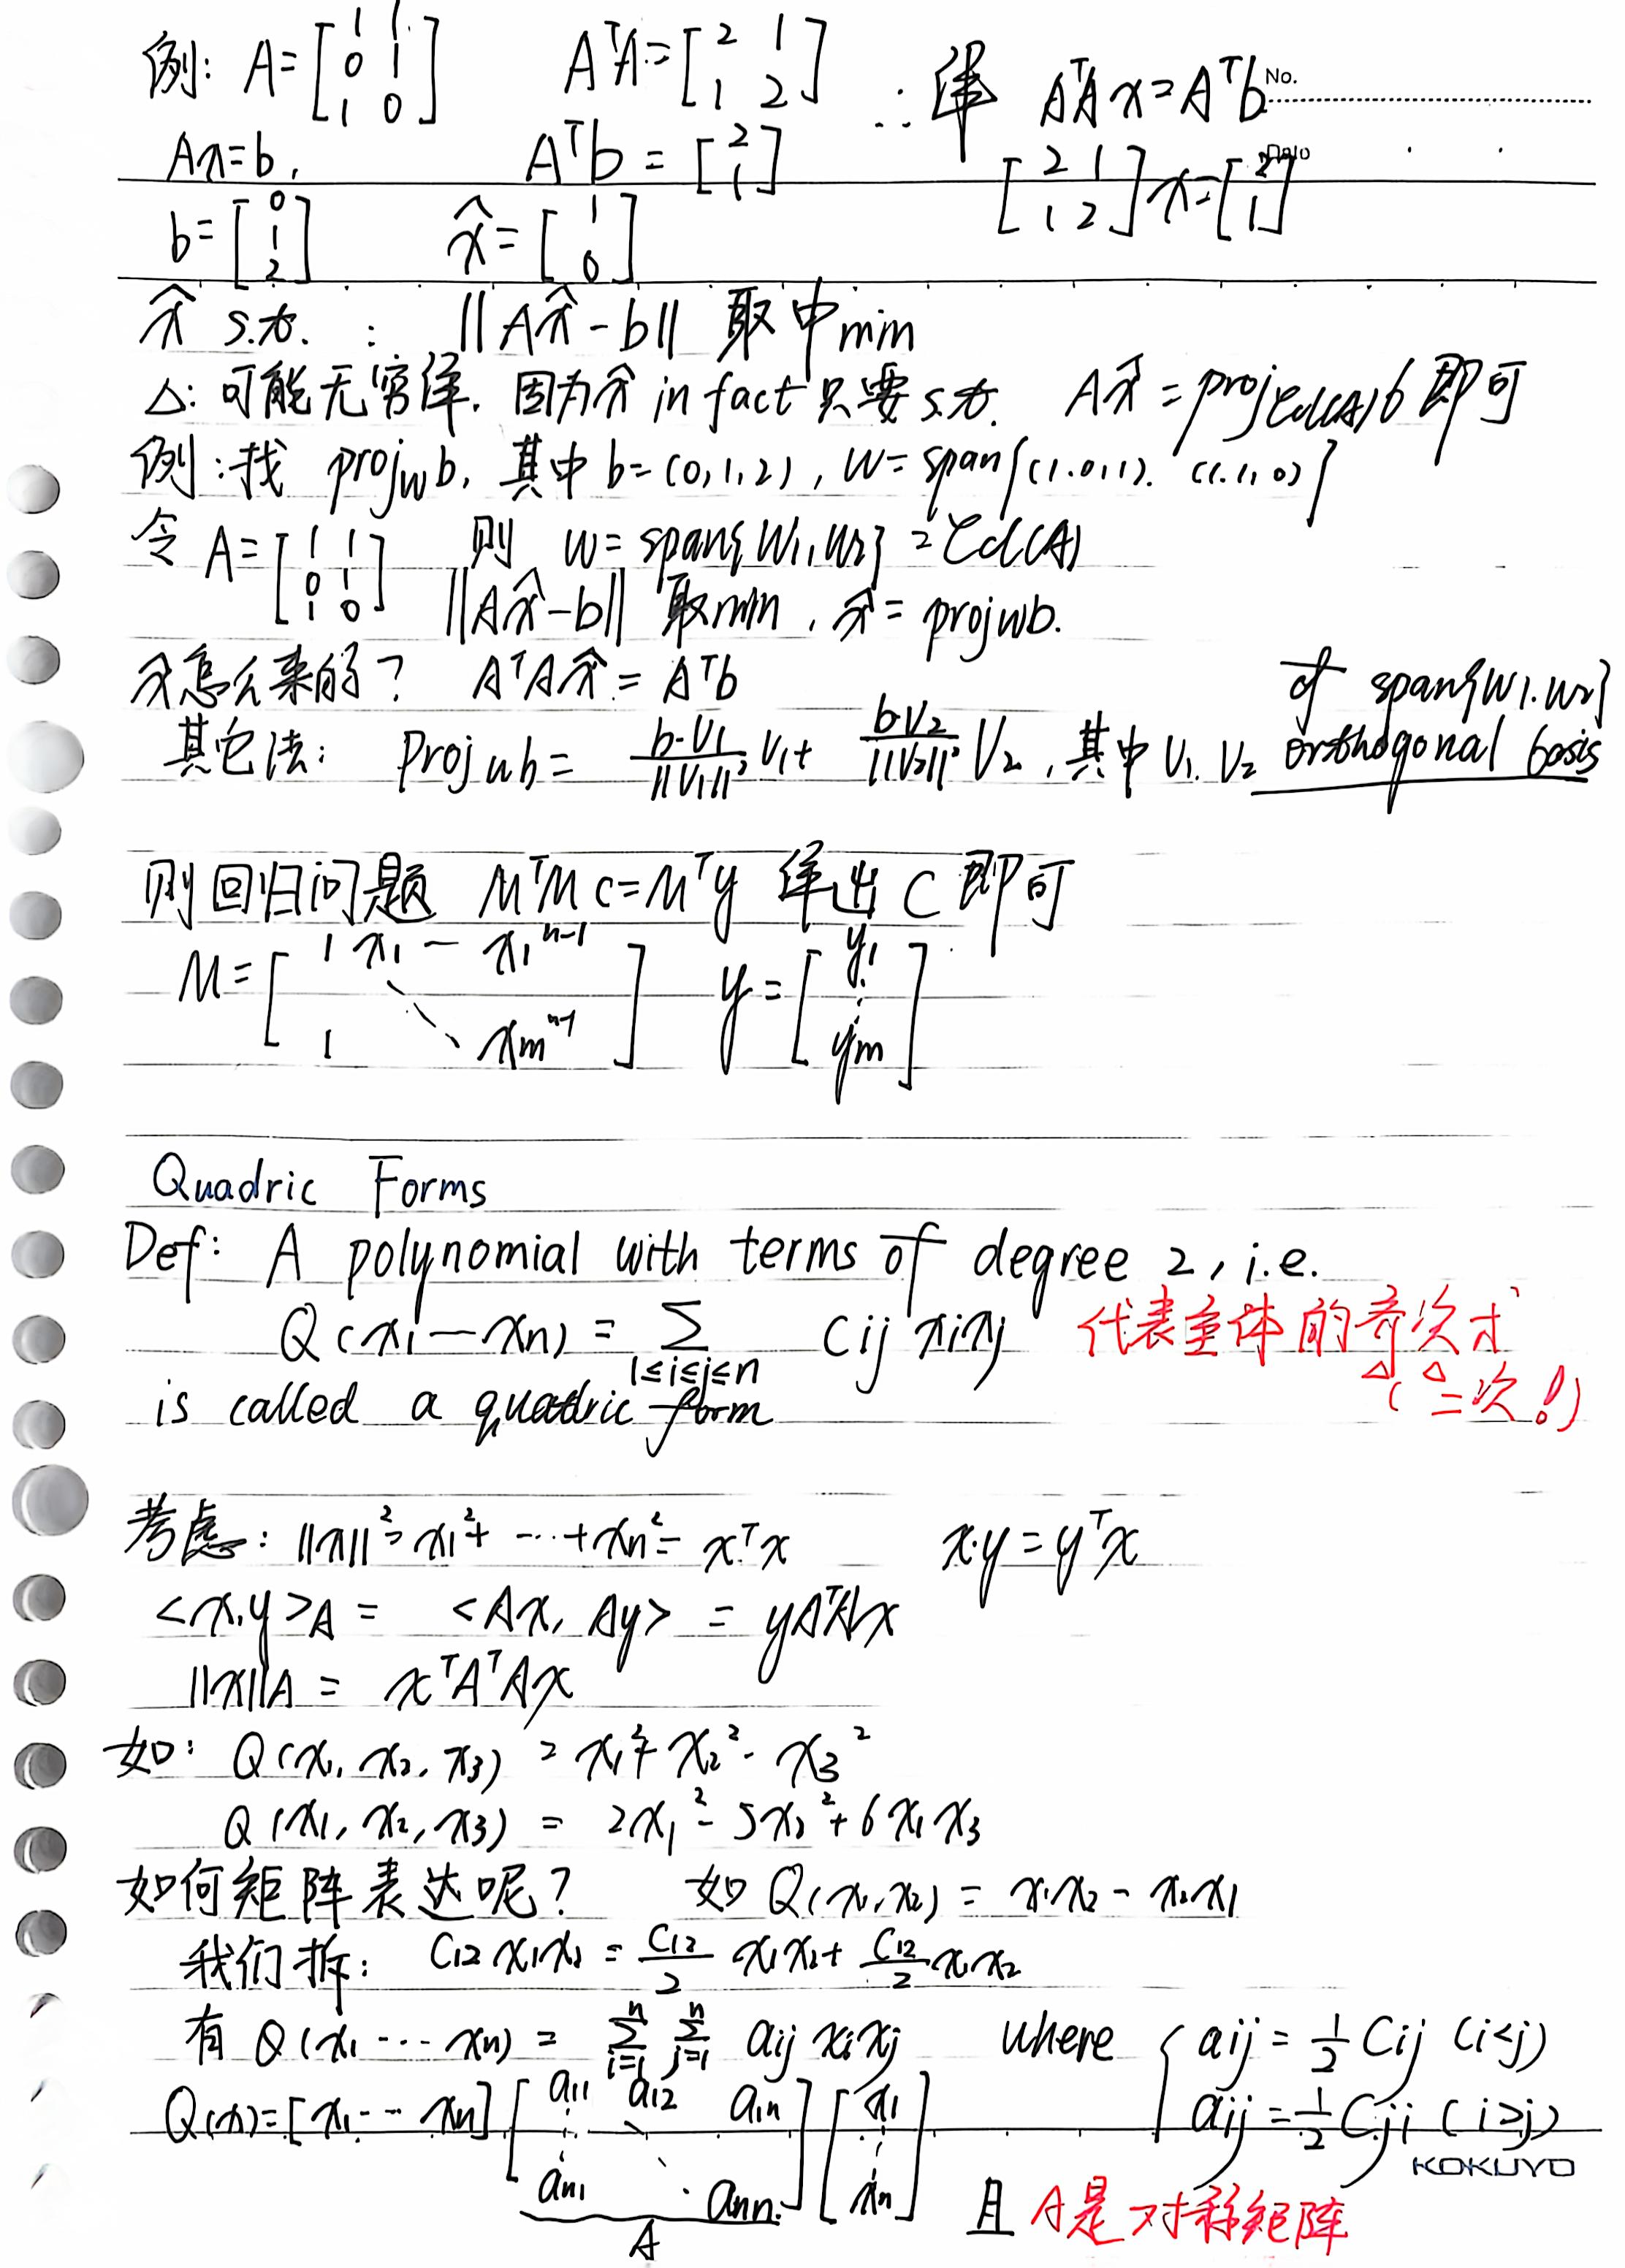 例: A=[1 1; 0 1; 1 0] AᵀA=[2 1; 1 2] ∴解 AᵀAx=Aᵀb No.
Ax=b, Aᵀb=[2; 1] [2 1; 1 2]x=[2; 1]
b=[0; 1; 2] x̂=[1; 0]
x̂ s.t. : ||Ax̂-b|| 取中min
△: 可能无穷解. 因为x̂ in fact 只要s.t. Ax̂=proj_{Col(A)}b 即可
例:找 proj_w b, 其中b=(0,1,2), W=span{(1.0,1). (1.1,0)}
令 A=[1 1; 0 1; 1 0] 则 W=span{W1,W2}=Col(A)
||Ax̂-b|| 取min, x̂=proj_w b.
x̂怎么来的? AᵀAx̂=Aᵀb of span{W1.W2}
其它法: Proj_w b = b·V1/||V1||² V1 + b·V2/||V2||² V2, 其中 V1. V2 orthogonal basis
则回归问题 MᵀMc=Mᵀy 解出 C 即可
M=[1 x₁ — x₁ⁿ⁻¹; 1 ⋱ xₘⁿ⁻¹] y=[y₁; ⋮; yₘ]
Quadric Forms
Def: A polynomial with terms of degree 2, i.e.
Q(x₁—xₙ) = Σ_{1≤i≤j≤n} Cij xixj 代表主体的齐次式
is called a quadric form (二次!)
考虑: ||x||²=x₁²+ ··· +xₙ²=xᵀx x·y=yᵀx
<x.y>A = <Ax, Ay> = yAᵀAx
||x||A = xᵀAᵀAx
如: Q(x₁, x₂, x₃) = x₁²+x₂²-x₃²
Q(x₁, x₂, x₃) = 2x₁²-5x₂²+6x₁x₃
如何矩阵表达呢? 如 Q(x₁,x₂) = x₁x₂-x₂x₁
我们拆: C₁₂x₁x₂ = C₁₂/2 x₁x₂ + C₁₂/2 x₁x₂
有 Q(x₁ ··· xₙ) = Σ_{i=1}^{n} Σ_{j=1}^{n} aij xixj where { aij = 1/2 Cij (i<j)
Q(x)=[x₁ ··· xₙ][a₁₁ a₁₂ a₁ₙ; ⋮ ⋱; aₙ₁ · aₙₙ][x₁; ⋮; xₙ] aij = 1/2 Cji (i≥j)
KOKUYO
A 且 A是对称矩阵